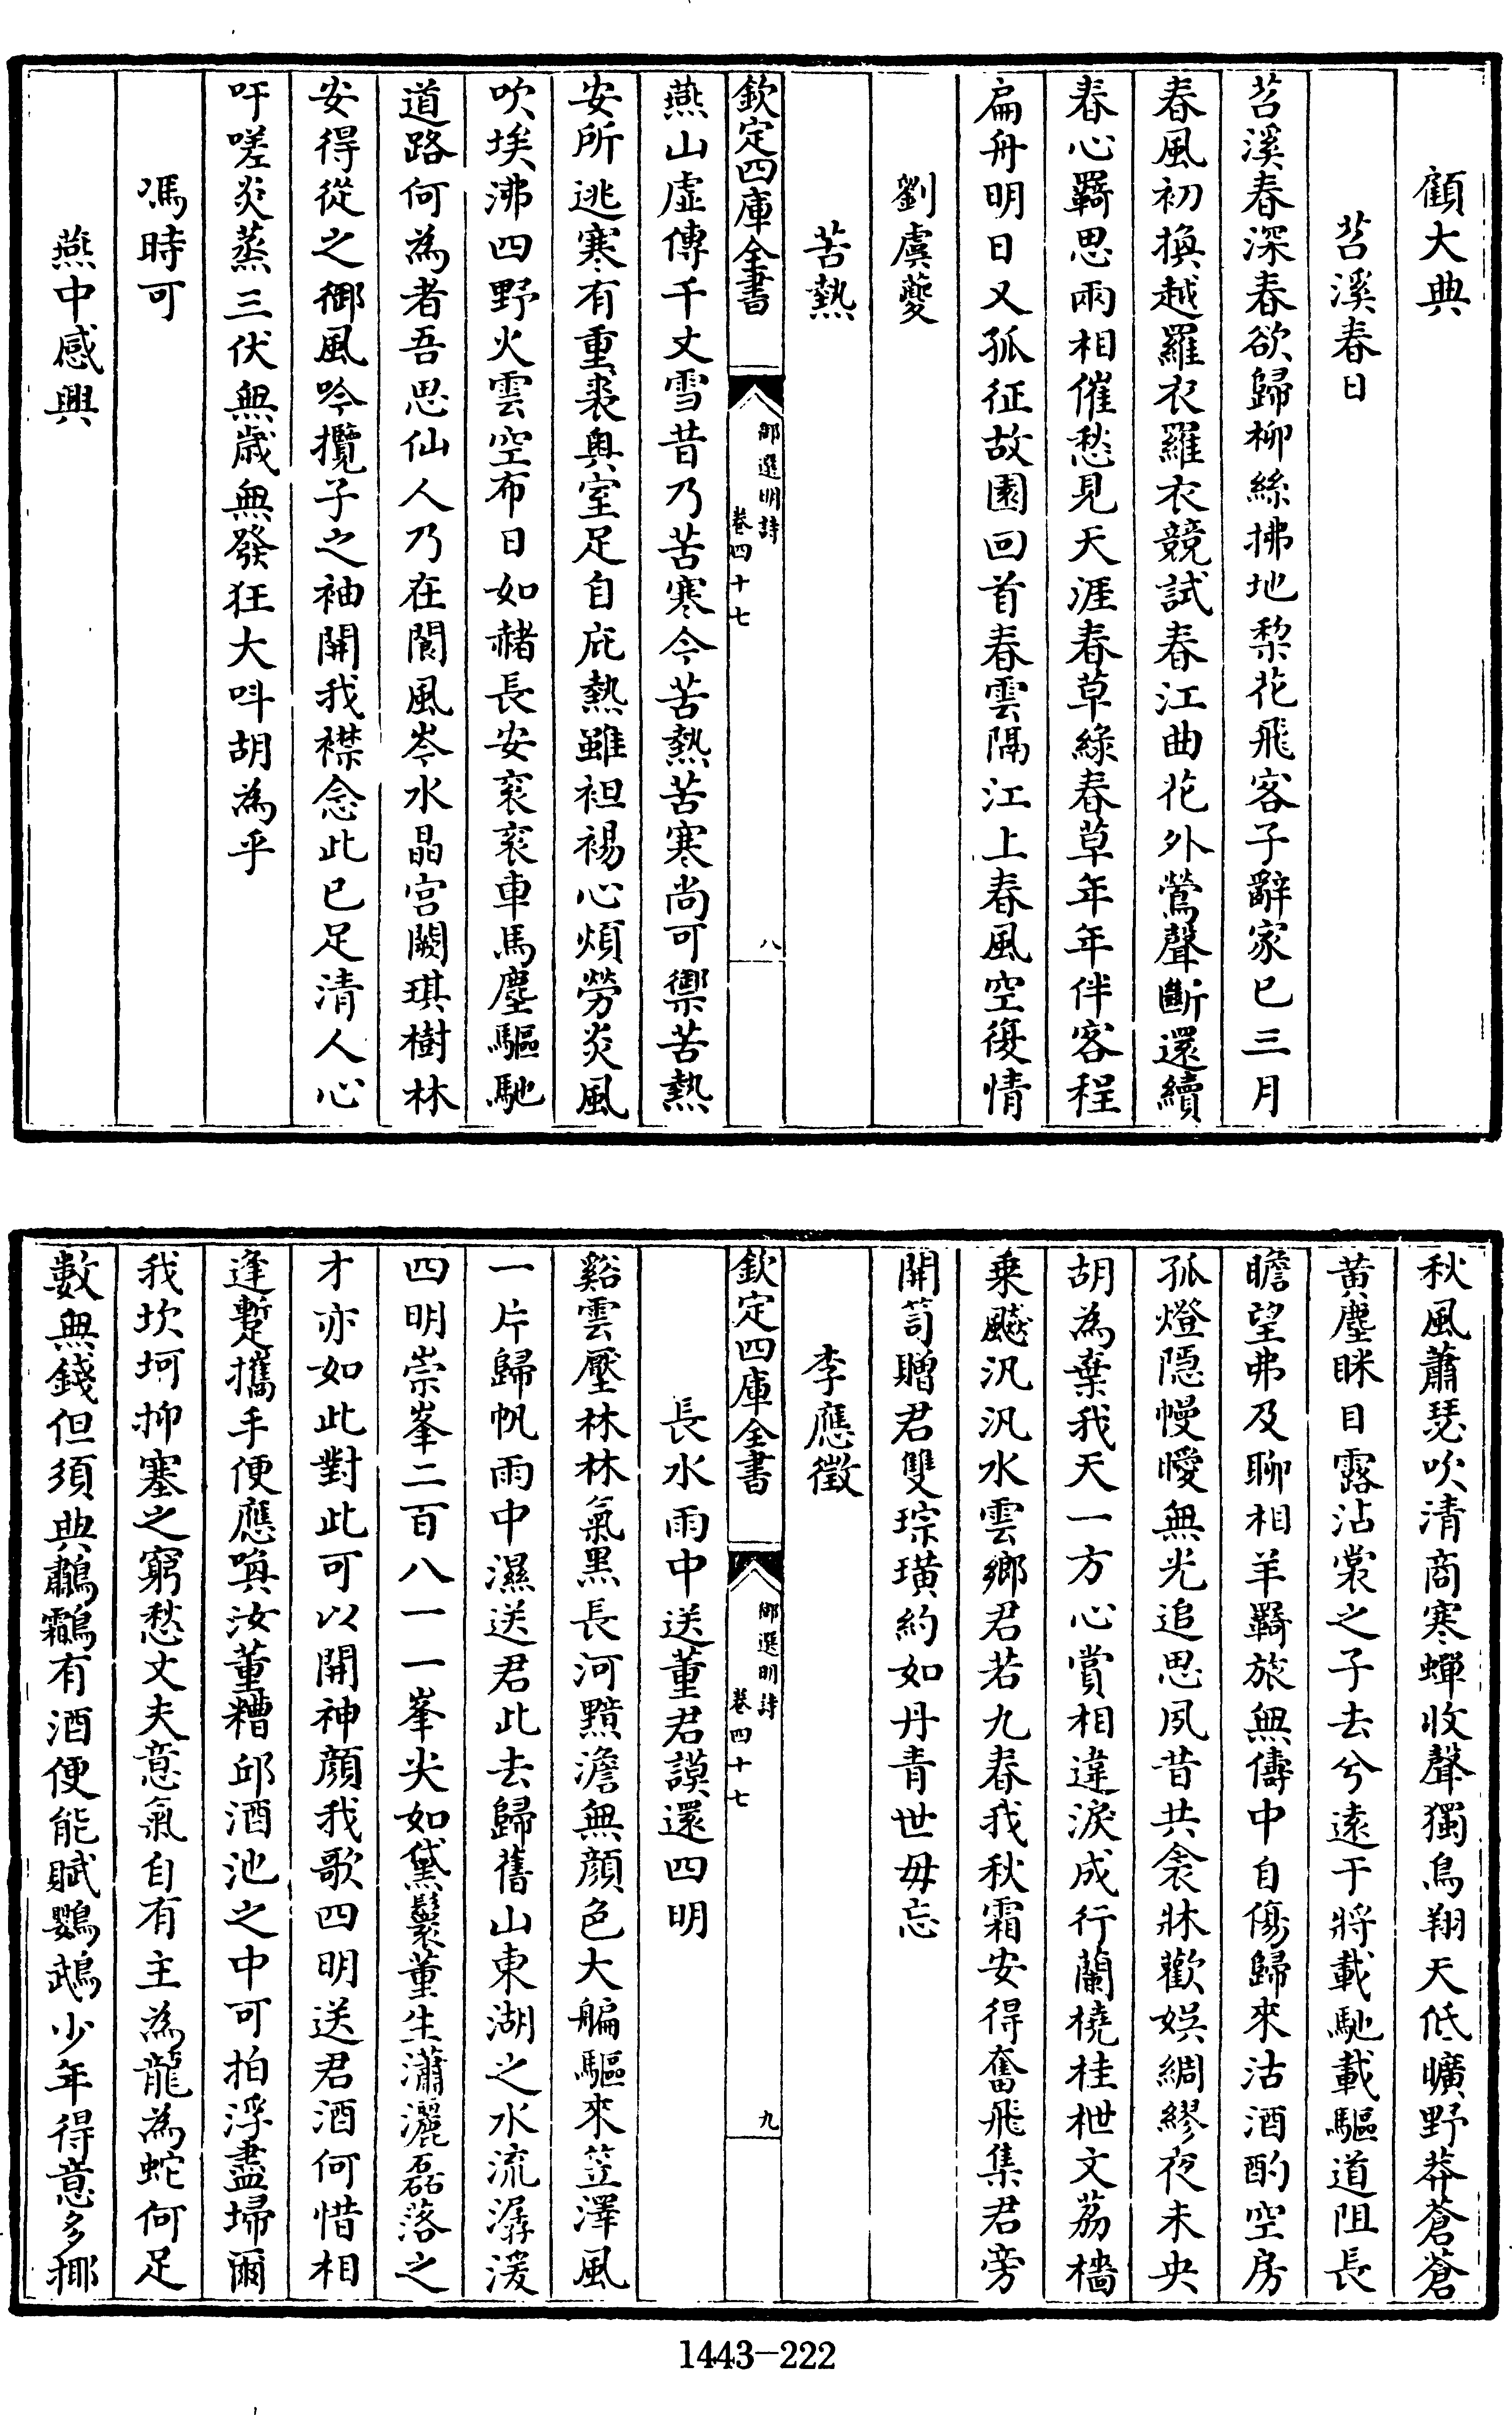 顧大典
苕溪春日
苕溪春深春欲歸柳絲拂地梨花飛客子辭家已三月
春風初換越羅衣羅衣競試春江曲花外鶯聲斷還續
春心羇思兩相催愁見天涯春草綠春草年年伴客程
扁舟明日又孤征故園回首春雲隔江上春風空復情
劉虞夔
苦熱
欽定四庫全書
御選明詩
卷四十七
八
燕山虛傳千丈雪昔乃苦寒今苦熱苦寒尚可禦苦熱
安所逃寒有重裘奧室足自庇熱雖袒裼心煩勞炎風
吹埃沸四野火雲空布日如赭長安衮衮車馬塵驅馳
道路何為者吾思仙人乃在閬風岑水晶宮闕琪樹林
安得從之御風吟攬子之袖開我襟念此已足清人心
吁嗟炎蒸三伏無歲無發狂大呌胡為乎
馮時可
燕中感興
秋風蕭瑟吹清商寒蟬收聲獨鳥翔天低曠野莽蒼蒼
黄塵眯目露沾裳之子去兮遠于將載馳載驅道阻長
瞻望弗及聊相羊羇旅無儔中自傷歸來沽酒酌空房
孤燈隱幔曖無光追思夙昔共衾牀歡娛綢繆夜未央
胡為棄我天一方心賞相違淚成行蘭橈桂枻文荔檣
乗颷汎汎水雲鄉君若九春我秋霜安得奮飛集君旁
開笥贈君雙琮璜約如丹青世毋忘
李應徵
欽定四庫全書
御選明詩
卷四十七
九
長水雨中送董君謨還四明
谿雲壓林林氣黑長河黯澹無顏色大艑驅來笠澤風
一片歸帆雨中濕送君此去歸舊山東湖之水流潺湲
四明崇峯二百八一一峯尖如黛鬟董生瀟灑磊落之
才亦如此對此可以開神顏我歌四明送君酒何惜相
逢蹔攜手便應喚汝董糟邱酒池之中可拍浮盡埽爾
我坎坷抑塞之窮愁丈夫意氣自有主為龍為蛇何足
數無錢但須典鷫鸘有酒便能賦鸚鵡少年得意多揶
1443-222